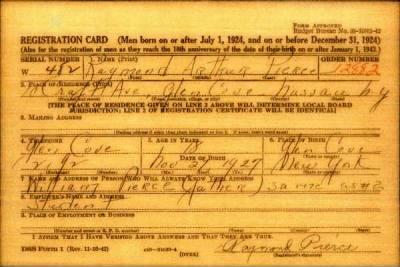 FORM APPROVED
REGISTRATION CARD—(Men born on or after July 1, 1924, and on or before December 31, 1924)
(Also for the registration of men as they reach the 18th anniversary of the date of their birth on or after January 1, 1943.)
SERIAL NUMBER 1. NAME (Print) ORDER NUMBER
W 482 Raymond Arthur Pierce
2. PLACE OF RESIDENCE (Print)
Ave Glen Cove Nassau N.Y.
[THE PLACE OF RESIDENCE GIVEN ON LINE 2 ABOVE WILL DETERMINE LOCAL BOARD
JURISDICTION; LINE 2 OF REGISTRATION CERTIFICATE WILL BE IDENTICAL]
3. MAILING ADDRESS
4. TELEPHONE 5. AGE IN YEARS 6. PLACE OF BIRTH
Glen Cove Glen Cove
Nov New York
7. NAME AND ADDRESS OF PERSON WHO WILL ALWAYS KNOW YOUR ADDRESS
William Pierce (father) same as #2
8. EMPLOYER'S NAME AND ADDRESS
Student
9. PLACE OF EMPLOYMENT OR BUSINESS
I AFFIRM THAT I HAVE VERIFIED ABOVE ANSWERS AND THAT THEY ARE TRUE.
DSS FORM 1 (Rev. 11-16-42) (OVER)
Raymond Pierce